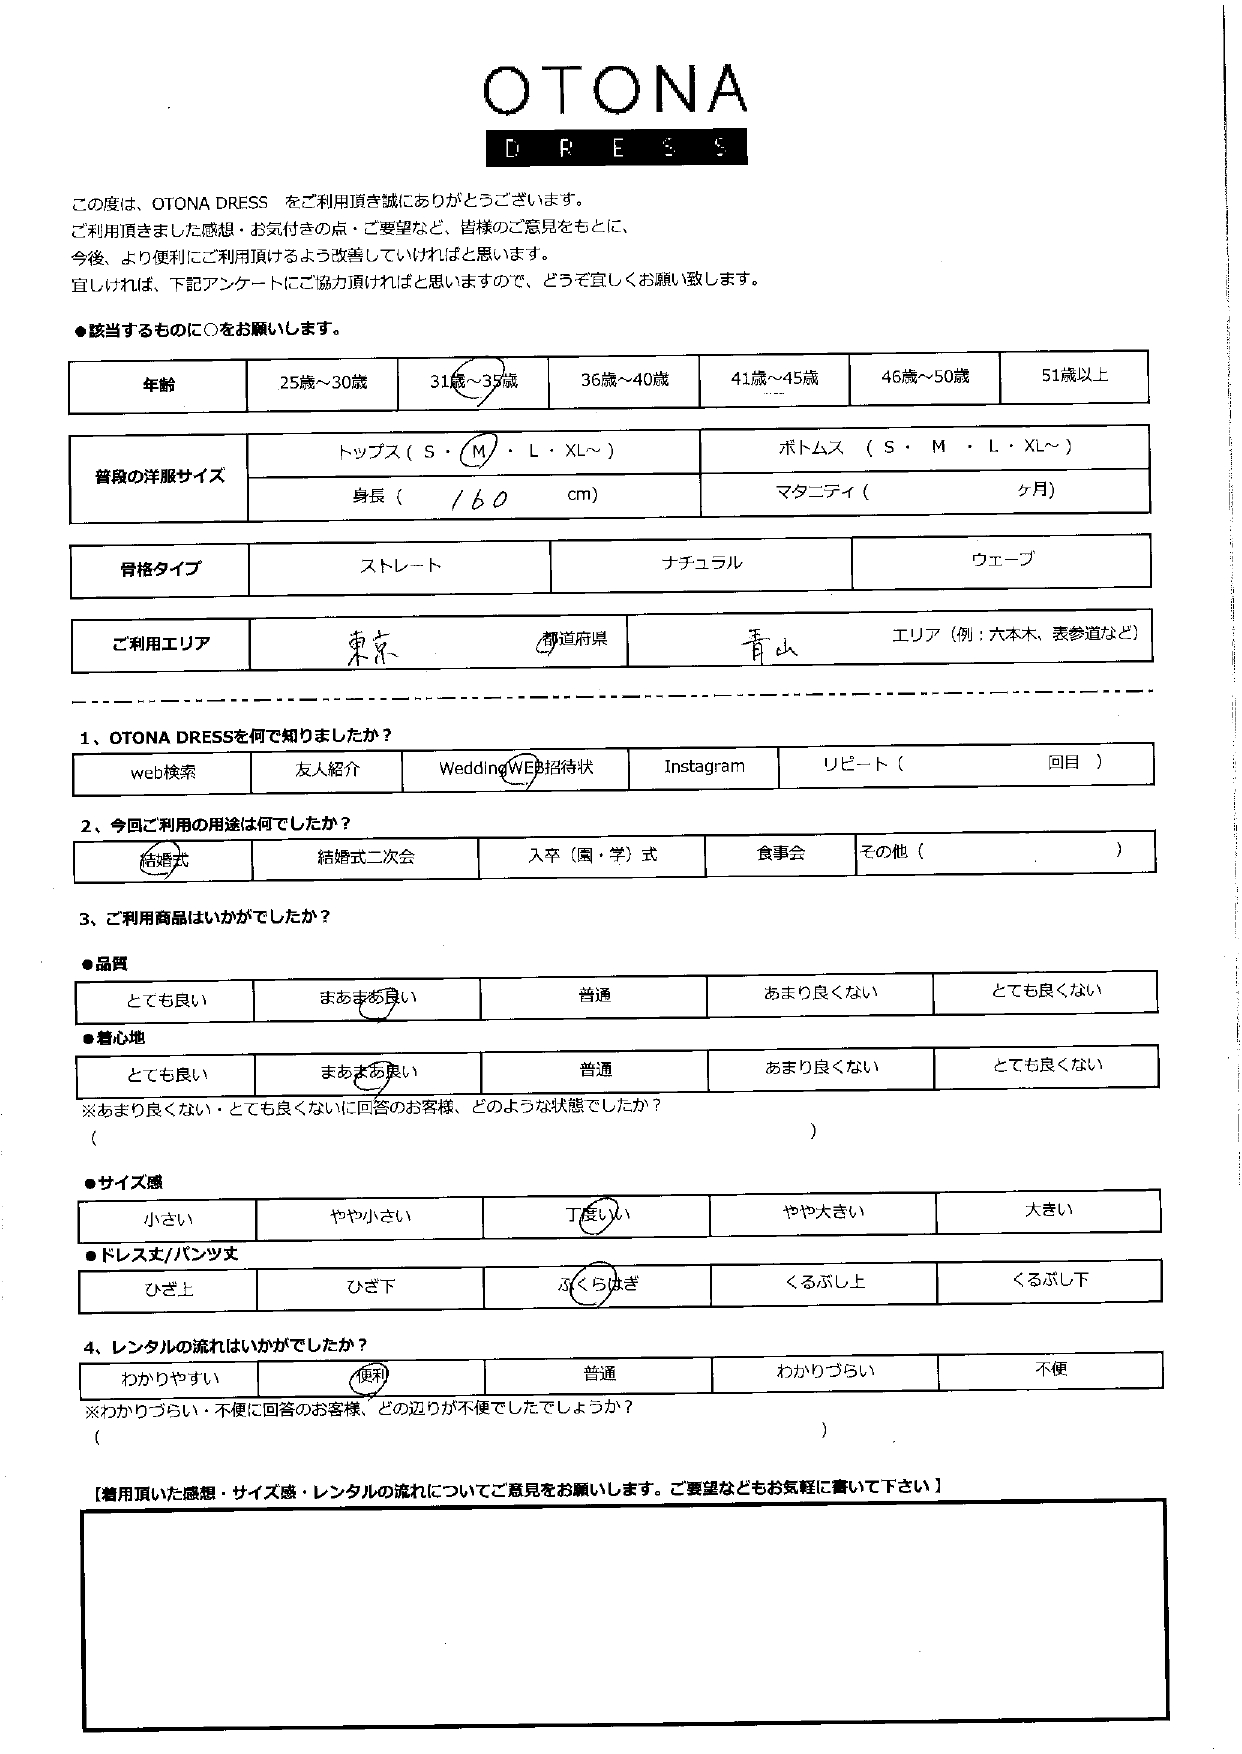 OTONA
DRESS
この度は、OTONA DRESS　をご利用頂き誠にありがとうございます。
ご利用頂きました感想・お気付きの点・ご要望など、皆様のご意見をもとに、
今後、より便利にご利用頂けるよう改善していければと思います。
宜しければ、下記アンケートにご協力頂ければと思いますので、どうぞ宜しくお願い致します。
●該当するものに○をお願いします。
年齢 25歳～30歳 31歳～35歳 36歳～40歳 41歳～45歳 46歳～50歳 51歳以上
普段の洋服サイズ トップス ( S ・ M ・ L ・ XL～ ) ボトムス ( S ・ M ・ L ・ XL～ )
身長 ( 160 cm) マタニティ ( ケ月)
骨格タイプ ストレート ナチュラル ウェーブ
ご利用エリア 東京 都道府県 青山 エリア（例：六本木、表参道など）
1、OTONA DRESSを何で知りましたか？
web検索 友人紹介 WeddingWEB招待状 Instagram リピート ( 回目 )
2、今回ご利用の用途は何でしたか？
結婚式 結婚式二次会 入卒（園・学）式 食事会 その他 ( )
3、ご利用商品はいかがでしたか？
●品質
とても良い まあまあ良い 普通 あまり良くない とても良くない
●着心地
とても良い まあまあ良い 普通 あまり良くない とても良くない
※あまり良くない・とても良くないに回答のお客様、どのような状態でしたか？
( )
●サイズ感
小さい やや小さい 丁度いい やや大きい 大きい
●ドレス丈/パンツ丈
ひざ上 ひざ下 ふくらはぎ くるぶし上 くるぶし下
4、レンタルの流れはいかがでしたか？
わかりやすい 便利 普通 わかりづらい 不便
※わかりづらい・不便に回答のお客様、どの辺りが不便でしたでしょうか？
( )
【着用頂いた感想・サイズ感・レンタルの流れについてご意見をお願いします。ご要望などもお気軽に書いて下さい】